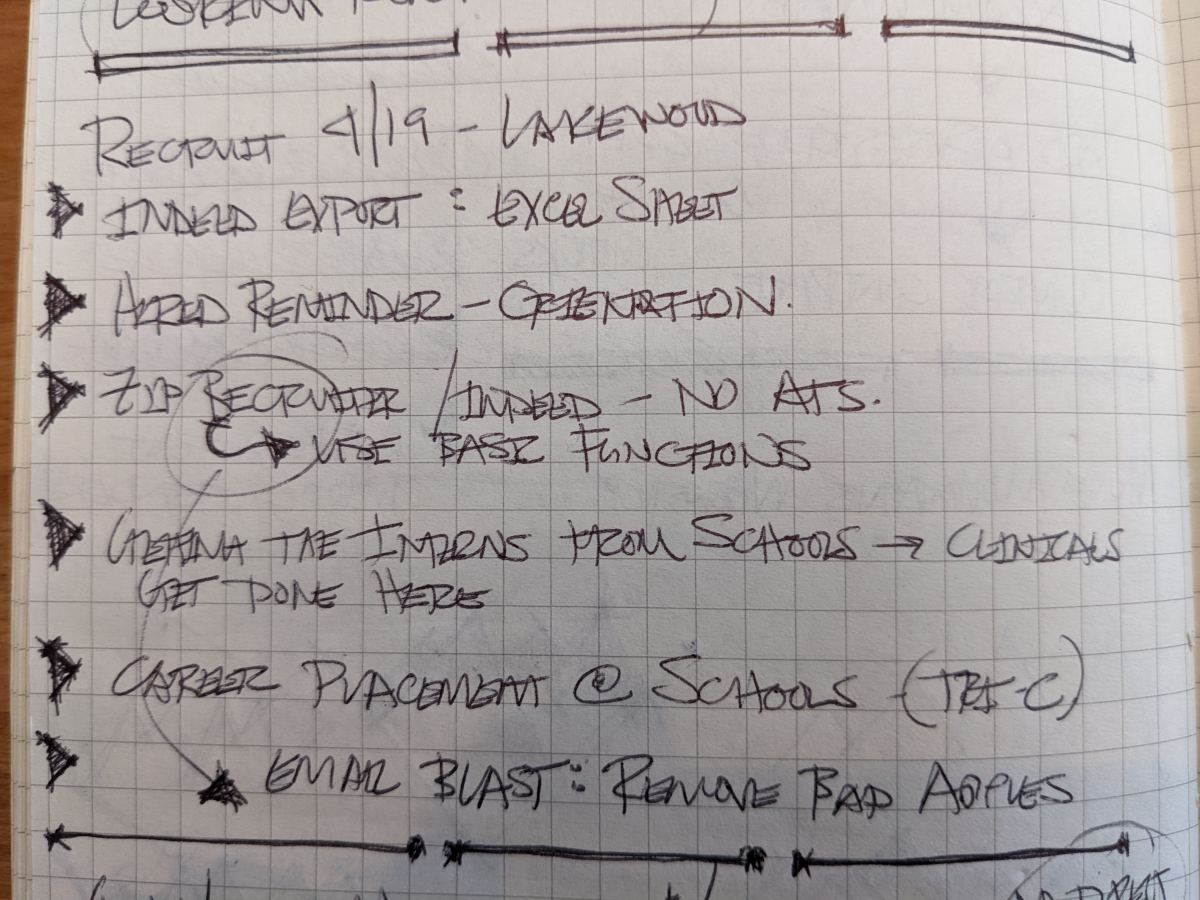 RECRUIT 4/19 - LAKEWOOD
INDEED EXPORT : EXCEL SHEET
HIRED REMINDER - ORIENTATION.
ZIP RECRUITER / INDEED - NO ATS.
USE BASIC FUNCTIONS
GETTING THE INTERNS FROM SCHOOLS → CLINICALS
GET DONE HERE
CAREER PLACEMENT @ SCHOOLS (TRI-C)
EMAIL BLAST : REMOVE BAD APPLES